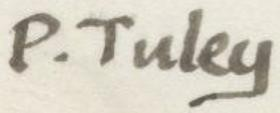 P. Tuley